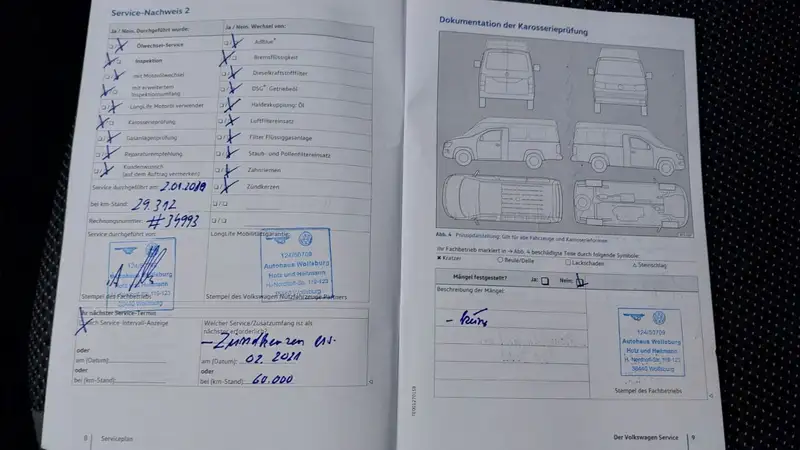 Service-Nachweis 2
Ja / Nein, Durchgeführt wurde:
Ölwechsel-Service
Inspektion
mit Motorölwechsel
mit erweitertem
Inspektionsumfang
LongLife Motoröl verwendet
Karosserieprüfung
Gasanlagenprüfung
Reparaturempfehlung
Kundenwunsch
(auf dem Auftrag vermerken)
Service durchgeführt am: 2.01.2019
bei km-Stand: 29.312
Rechnungsnummer: #34993
Service durchgeführt von:
124/50709
Autohaus Wolfsburg
Hotz und Heitmann
Stempel des Fachbetriebs
Ja / Nein, Wechsel von:
AdBlue®
Bremsflüssigkeit
Dieselkraftstofffilter
DSG® Getriebeöl
Haldexkupplung: Öl
Luftfiltereinsatz
Filter Flüssiggasanlage
Staub- und Pollenfiltereinsatz
Zahnriemen
Zündkerzen
LongLife Mobilitätsgarantie
124/50709
Autohaus Wolfsburg
Hotz und Heitmann
H.-Nordhoff-Str. 119-123
38440 Wolfsburg
Stempel des Volkswagen Nutzfahrzeuge Partners
Ihr nächster Service-Termin
nach Service-Intervall-Anzeige
oder
am (Datum):
oder
bei (km-Stand):
Welcher Service/Zusatzumfang ist als
nächster erforderlich?
- Zündkerzen ers.
am (Datum): 02.2021
oder
bei (km-Stand): 60.000
8 Serviceplan
Dokumentation der Karosserieprüfung
Abb. 4 Prinzipdarstellung: Gilt für alle Fahrzeuge und Karosserieformen
Ihr Fachbetrieb markiert in → Abb. 4 beschädigte Teile durch folgende Symbole:
Kratzer Beule/Delle Lackschaden Steinschlag
Mängel festgestellt? Ja: Nein:
Beschreibung der Mängel
124/50709
Autohaus Wolfsburg
Hotz und Heitmann
H.-Nordhoff-Str. 119-123
38440 Wolfsburg
Stempel des Fachbetriebs
Der Volkswagen Service 9